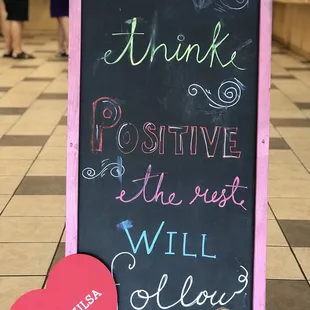 think
POSITIVE
the rest
WILL
follow
ULSA